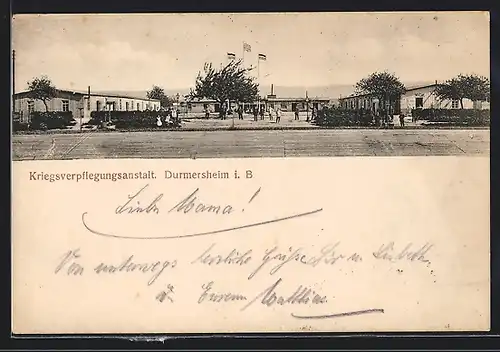 Kriegsverpflegungsanstalt. Durmersheim i. B
Liebe Mama!
Von unterwegs herzliche Grüsse Dir u. Lisbeth
Euren Matthias